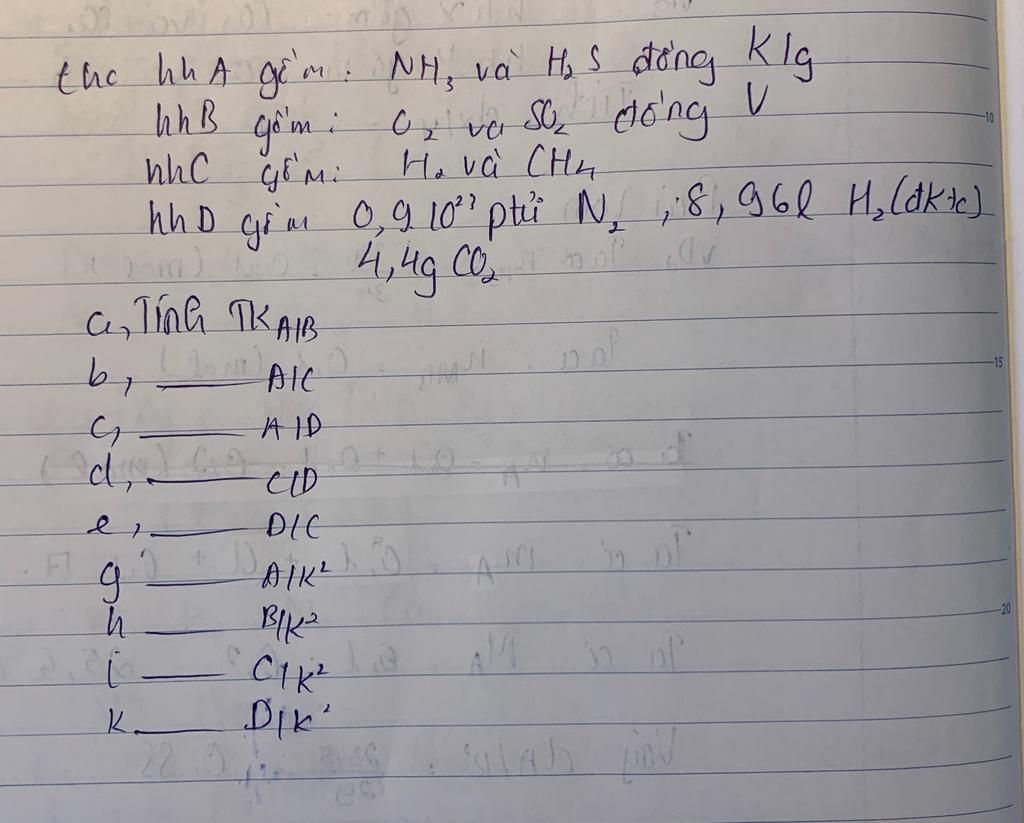 thc hh A gồm : NH₃ và H₂S đồng Klg
hhB gồm : O₂ và SO₂ đồng V
hhC gồm: H₂ và CH₄
hhD gồm 0,9 10²³ ptử N₂ , 8,96l H₂(đktc)
4,4g CO₂
a, Tính TK A/B
b, —— A/C
c, —— A/D
d, —— C/D
e, —— D/C
g —— A/K²
h —— B/K²
i —— C/K²
k —— D/K²
10
15
20